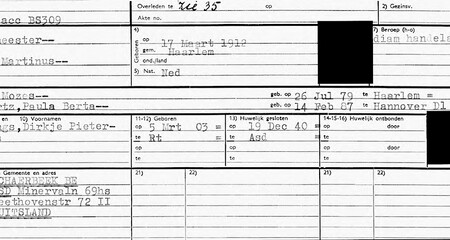 Overleden te Zie 35 op 2) Gezinsv.
acc BS309 Akte no.
meester-- 4) 7) Beroep (h-o)
Geboren op 17 Maart 1912 diam handela
gem. Haarlem
Martinus-- ond./land
5) Nat. Ned
Mozes-- geb. op 26 Jul 79 te Haarlem =
rtz, Paula Berta-- geb. op 14 Feb 87 te Hannover Dl
en 10) Voornamen 11-12) Geboren 13) Huwelijk gesloten 14-15-16) Huwelijk ontbonden
ngs, Dirkje Pieter- op 5 Mrt 03 = op 19 Dec 40 = op door
te Rt = te Asd te door
Gemeente en adres 21) 22) 21) 22)
CHAERBEEK BE
SD Minervaln 69hs
eethovenstr 72 II
UITSLAND